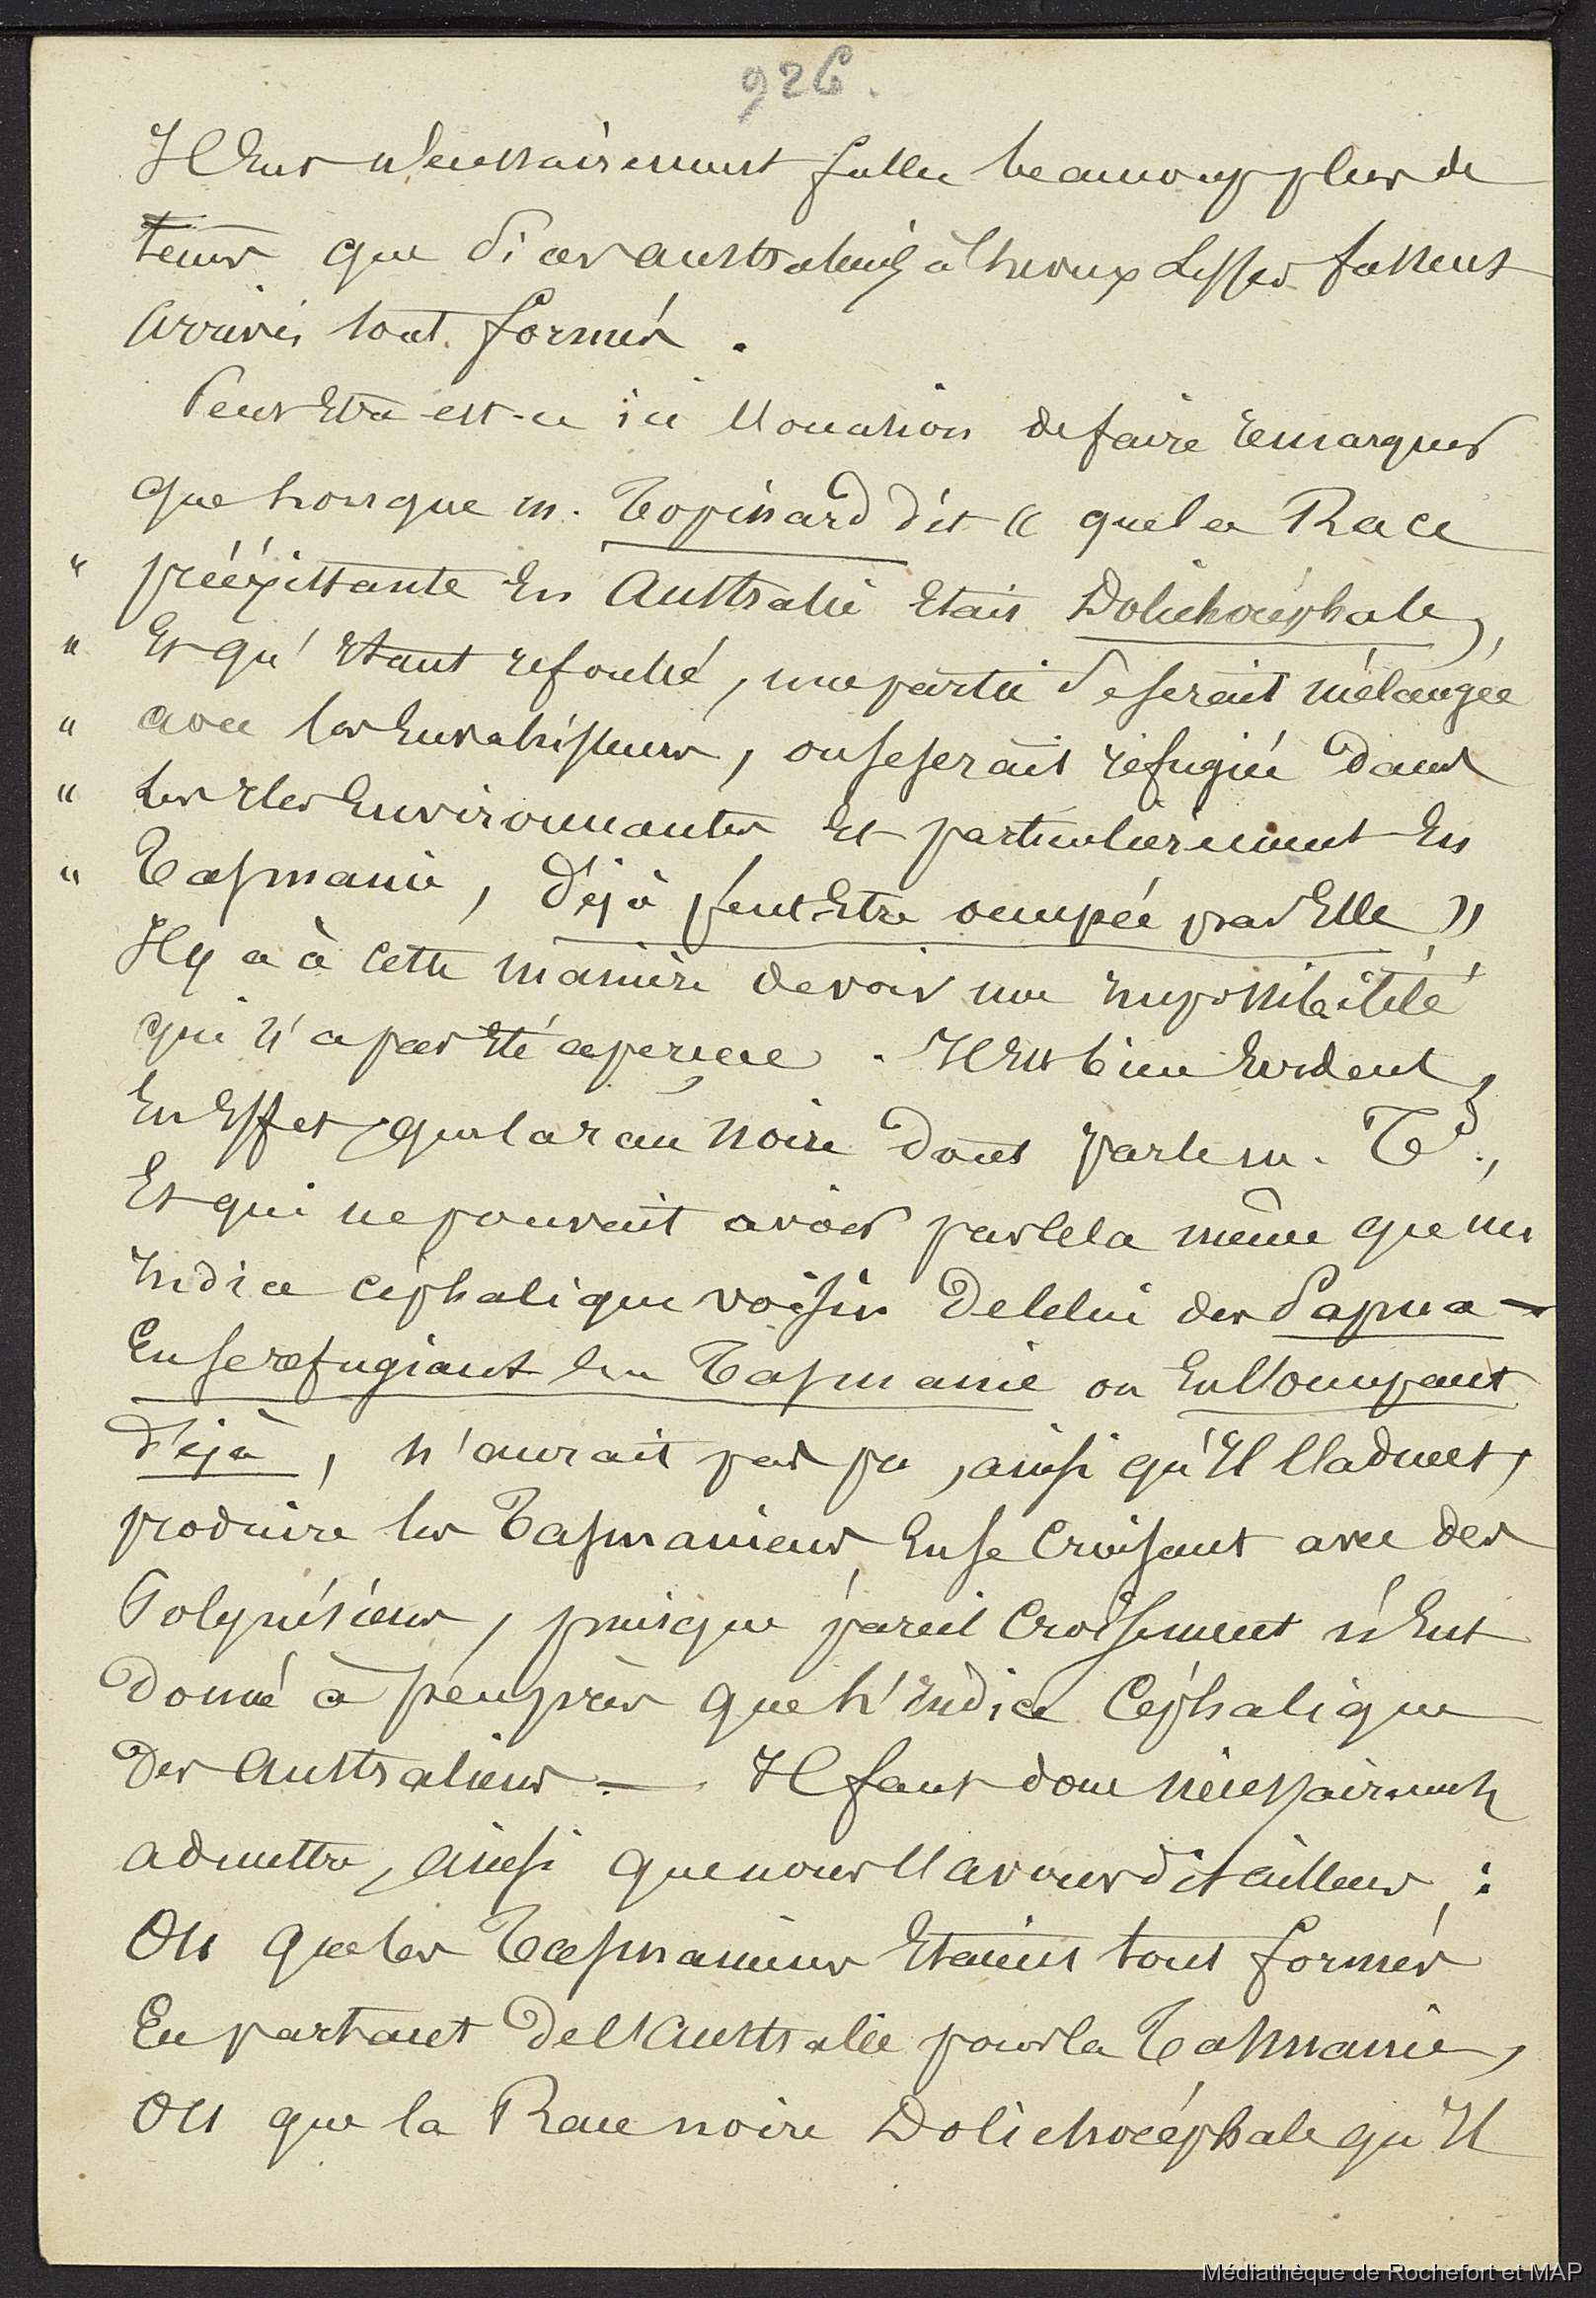 926.
Il eut nécessairement fallu beaucoup plus de
tems que si ces australiens à cheveux lisses fussent
arrivés tout formés.
Peut etre est-ce ici l'occasion de faire remarquer
que lorsque m. Topinard dit « que la Race
" prééxistante en Australie etait Dolichocéphale,
" et qu'etant refoulée, une partie se serait mélangée
" avec les envahisseurs, ou se serait réfugiée dans
" les iles environnantes et particulièrement en
" Tasmanie, déjà peut-etre occupée par elle »
Il y a à cette manière de voir une impossibilité
qui n'a pas été aperçue. Il est bien evident,
en effet, que la race noire dont parle m. Td.,
et qui ne pouvait avoir par cela même que un
indice céphalique voisin de celui des Papua —
en se refugiant en Tasmanie ou en l'occupant
déjà, n'aurait pas pu, ainsi qu'il l'admet,
produire les Tasmaniens en se croisant avec des
Polynésiens, puisque pareil croisement n'eut
donné à peu près que l'indice céphalique
des Australiens — Il faut donc nécessairement
admettre, ainsi que nous l'avons dit ailleurs :
Ou que les Tasmaniens etaient tout formés
en partant de l'Australie pour la Tasmanie,
Ou que la Race noire Dolichocéphale qu'il
Médiathèque de Rochefort et MAP